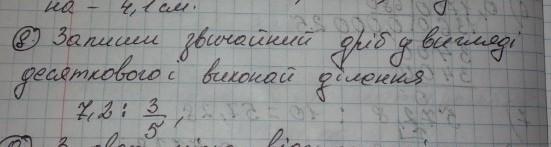 на - 4,1 см.
⑧ Запиши звичайний дріб у вигляді
десяткового і виконай ділення
7,2 : 3/5,